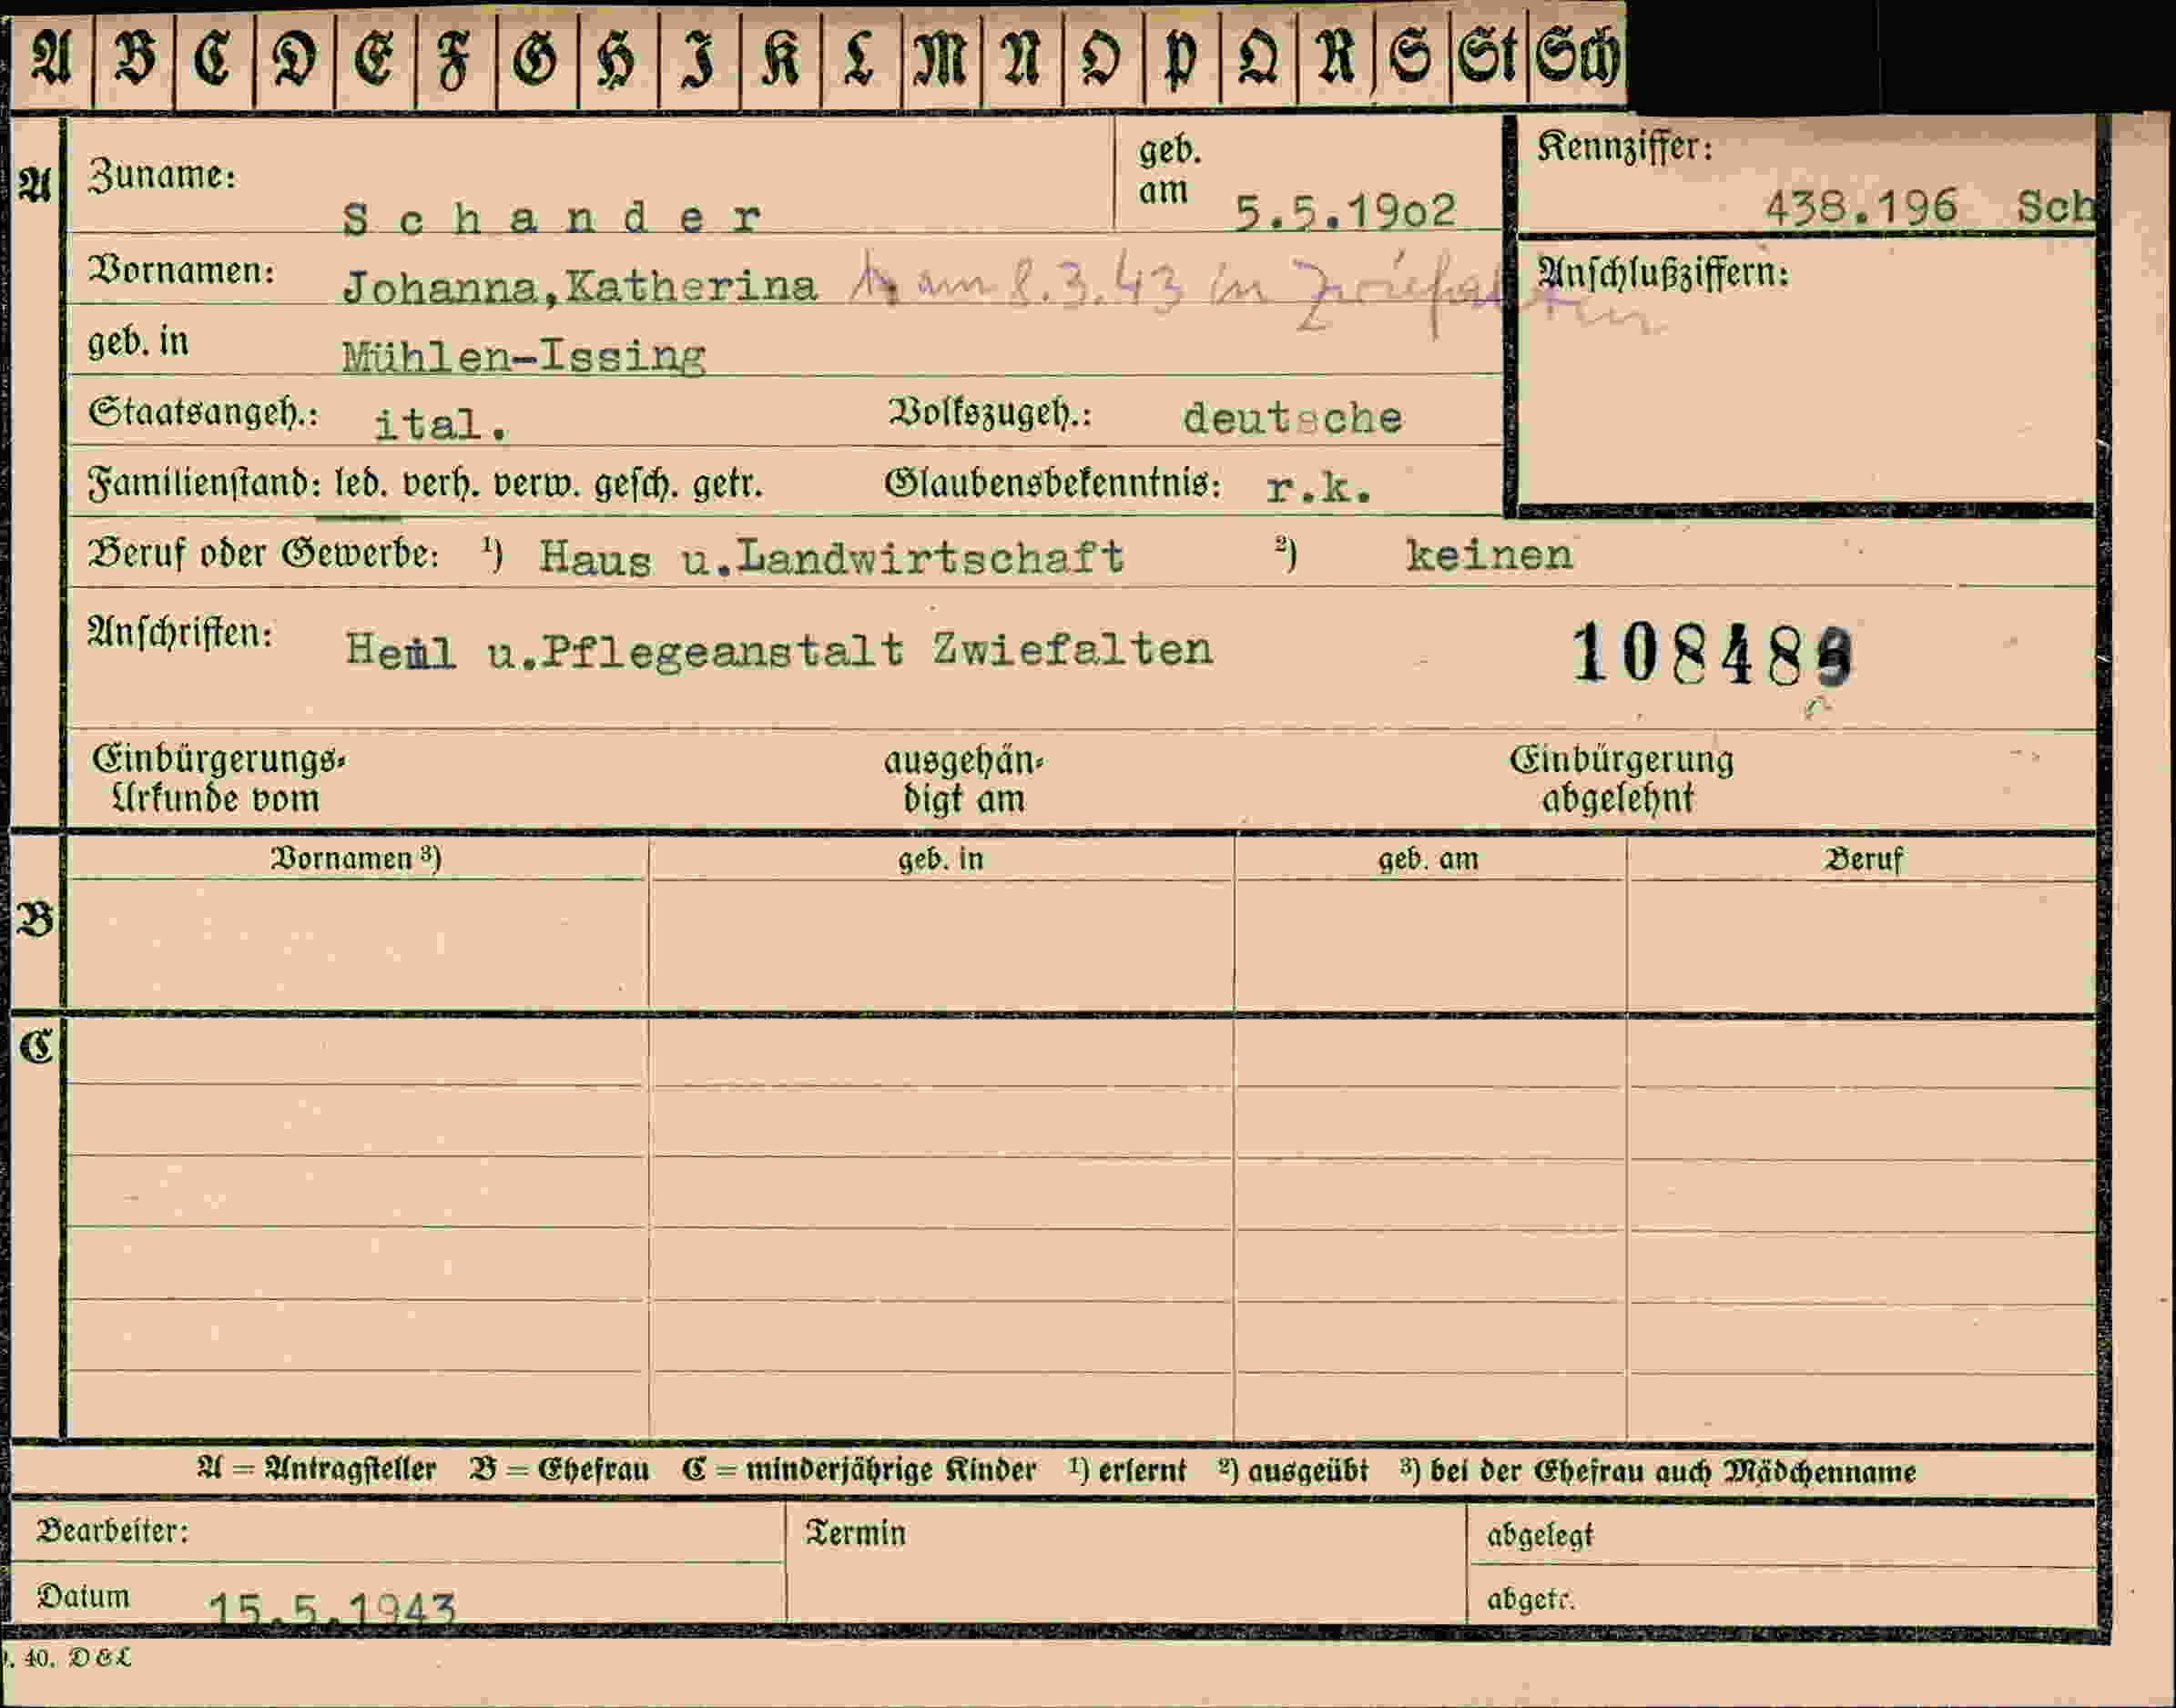 A B C D E F G H I K L M N O P Q R S St Sch
A Zuname: Schander geb. am 5.5.19o2 Kennziffer: 438.196 Sch
Vornamen: Johanna,Katherina am 8.3.43 in Zwiefalten Anschlußziffern:
geb. in Mühlen-Issing
Staatsangeh.: ital. Volkszugeh.: deutsche
Familienstand: led. verh. verw. gesch. getr. Glaubensbekenntnis: r.k.
Beruf oder Gewerbe: ¹) Haus u.Landwirtschaft ²) keinen
Anschriften: Heil u.Pflegeanstalt Zwiefalten 10848
Einbürgerungs- ausgehän- Einbürgerung
Urkunde vom digt am abgelehnt
Vornamen ³) geb. in geb. am Beruf
B
C
A = Antragsteller B = Ehefrau C = minderjährige Kinder ¹) erlernt ²) ausgeübt ³) bei der Ehefrau auch Mädchenname
Bearbeiter: Termin abgelegt
Datum 15.5.1943 abgetr.
40. D & L